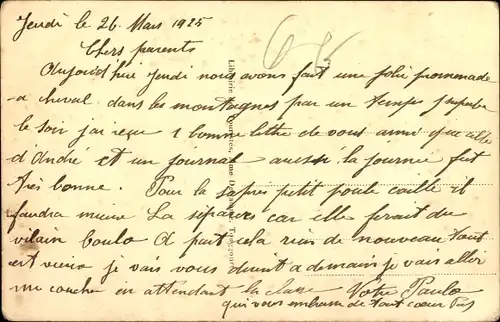 Jeudi le 26 Mars 1925
Chers parents
Aujourd'hui Jeudi nous avons fait une jolie promenade
a cheval dans les montagnes par un temps superbe
le soir j'ai reçu 1 bonne lettre de vous ainsi que celle
d'André et un journal aussi la journée fut
très bonne. Pour la petit poule caille il
faudra mieux la séparer car elle ferait du
vilain boulo A part cela rien de nouveau tout
est vieux je vais vous dire a demain je vais aller
me coucher en attendant la classe Votre Paulo
qui vous embrasse de tout coeur
Librairie